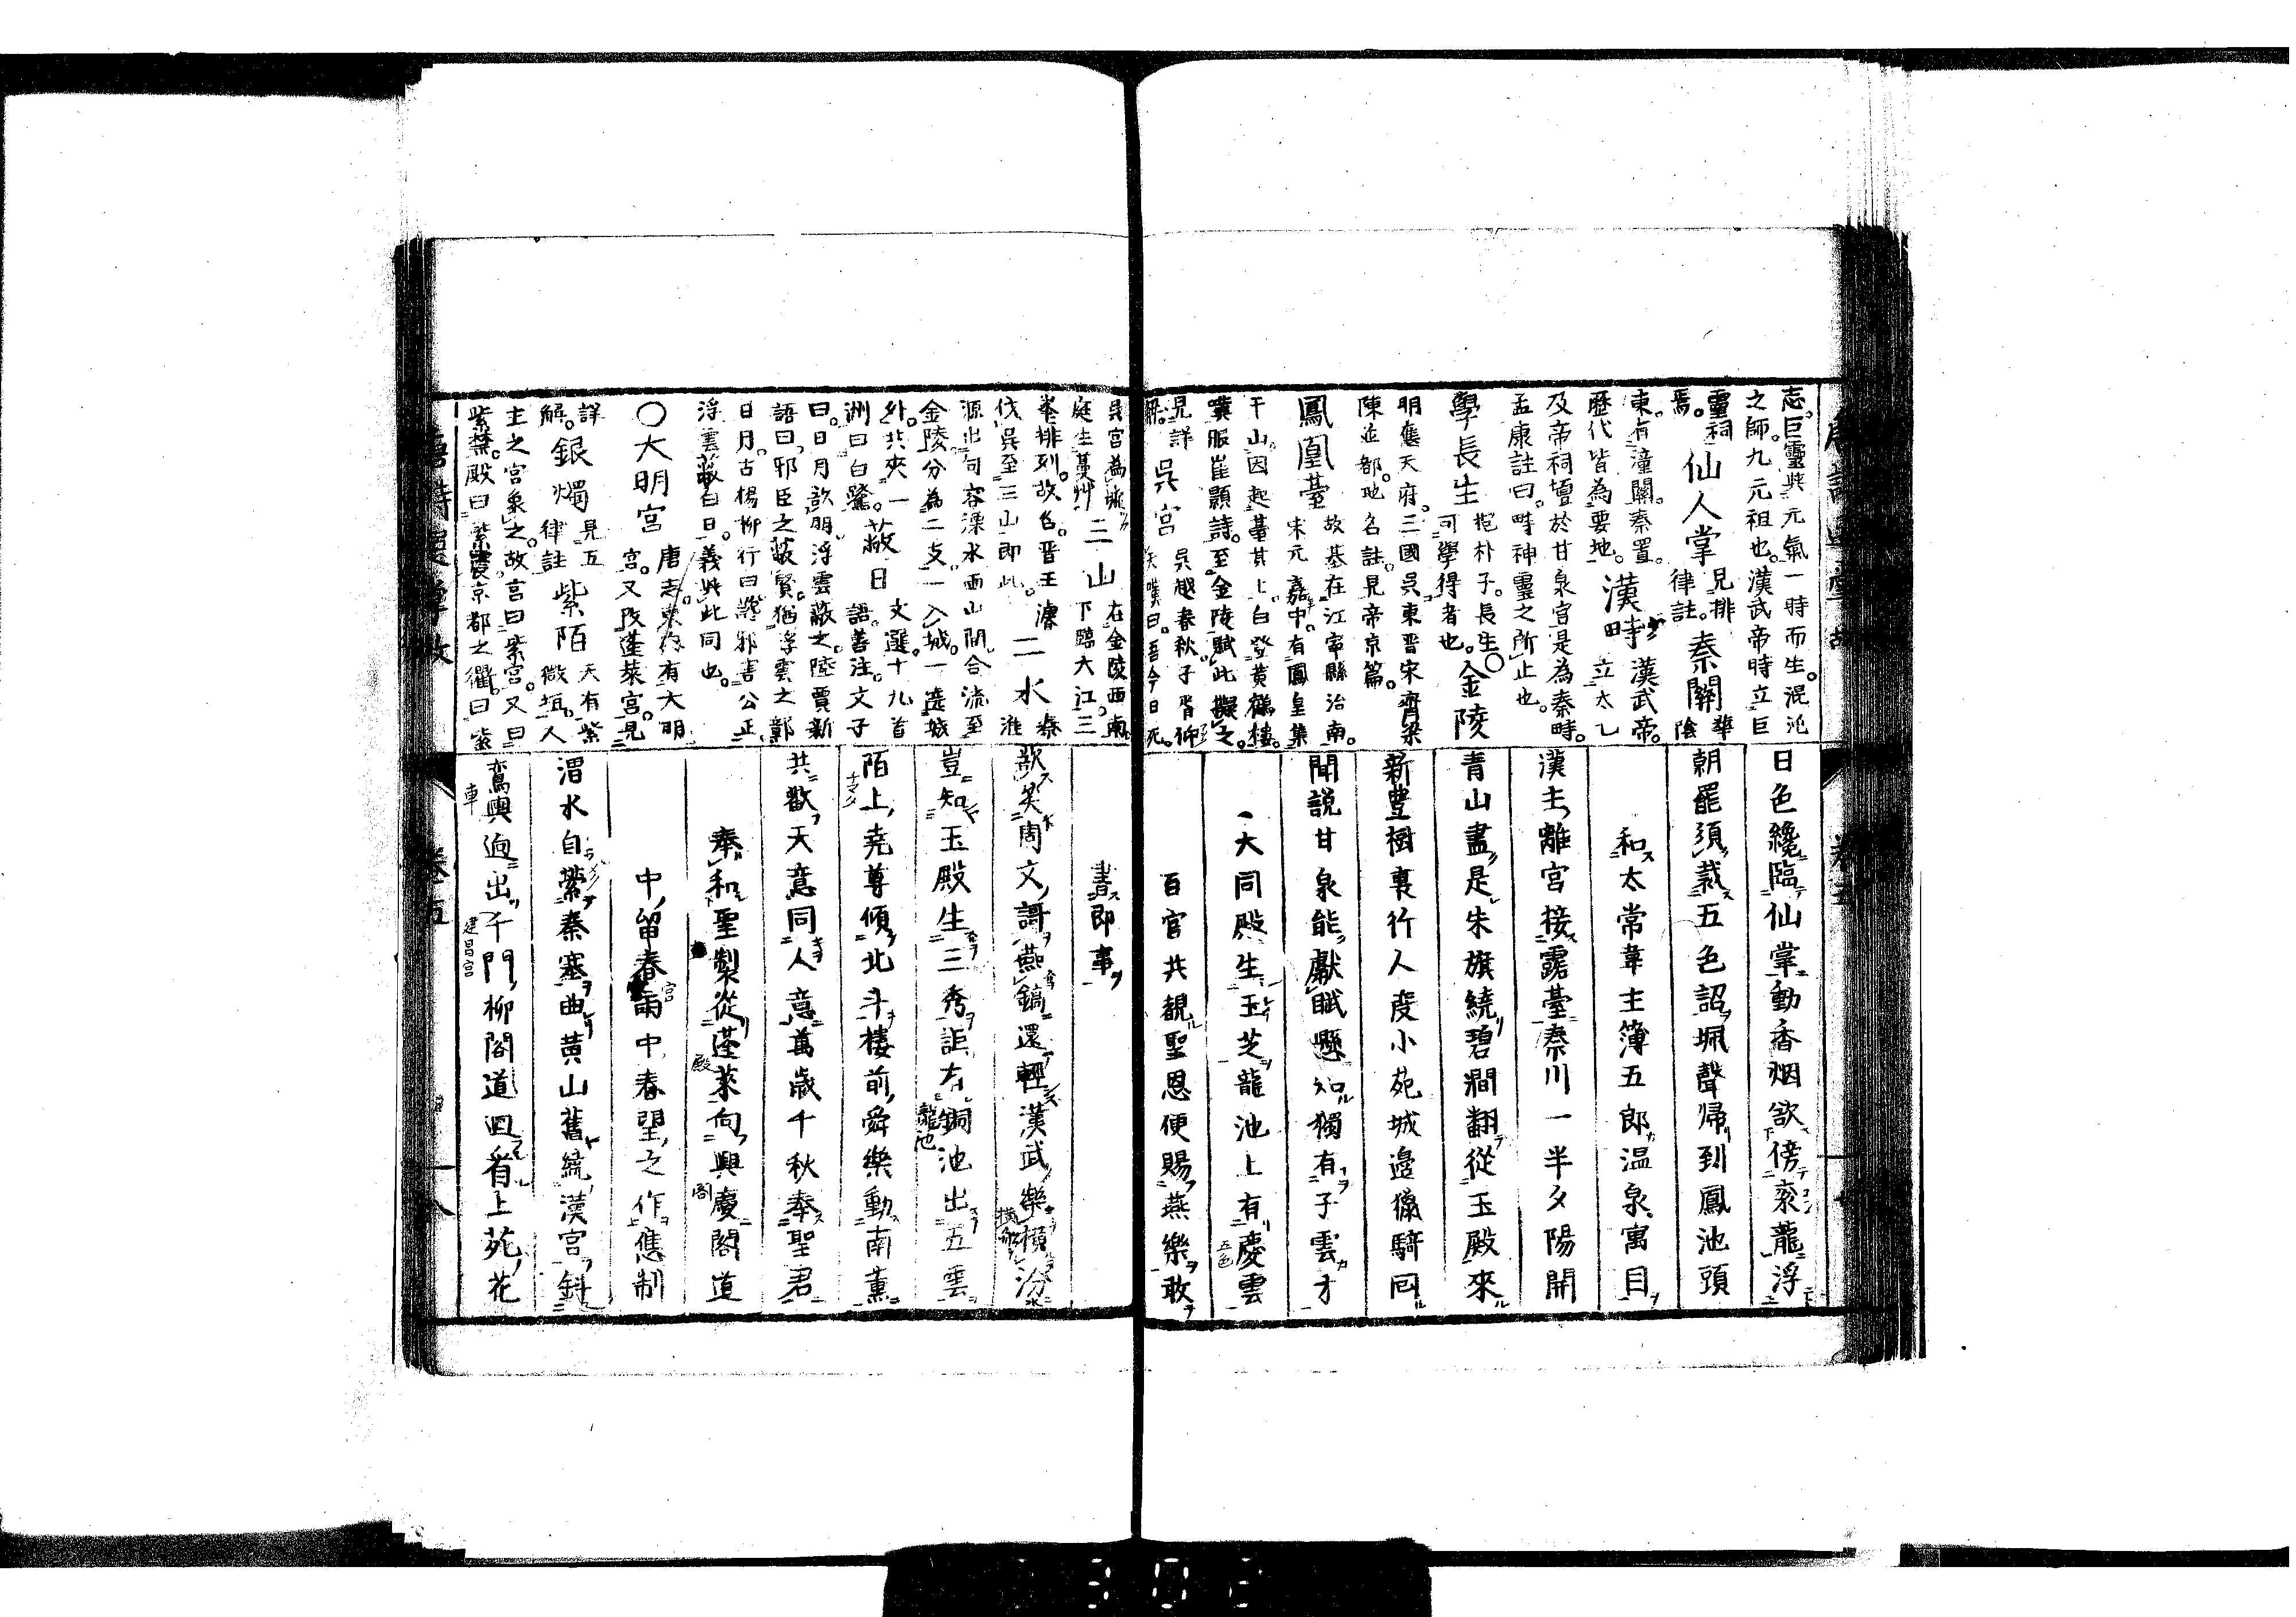 志。巨靈與元氣一時而生。混沌
之師。九元祖也。漢武帝時立巨
靈祠焉。 仙人掌 見排律註。 秦關 華陰
東。有潼關。秦置。歷代皆為要地。 漢畤 漢武帝。立太乙
及帝祠壇於甘泉宮是為秦畤。
孟康註曰。畤神靈之所止也。
學長生 抱朴子。長生可學得者也。〇 金陵
明應天府。三國吳東晉宋齊梁
陳並都。地名註。見帝京篇。
鳳凰臺 故基在江寧縣治南。宋元嘉中。有鳳皇集
于山。因起臺其上。白登黃鶴樓。
冀服崔顥詩。至金陵賦此擬之。
見詳解。 吳宮 吳越春秋子胥仰天嘆曰。吾今日死。
吳宮為墟庭生蔓艸 三山 在金陵西南。下臨大江。三
峯排列。故名。晉王濬伐吳至三山即此。 二水 秦淮
源出句容溧水兩山間。合流至
金陵。分為二支。一入城。一遶城
外。共夾一洲曰白鷺。 蔽日 文選十九首語。善注。文子
曰。日月欲明。浮雲蔽之。陸賈新
語曰。邪臣之蔽賢。猶浮雲之鄣
日月。古楊柳行曰。讒邪害公正。
浮雲蔽白日。義與此同也。
〇大明宮 唐志。東內有大明宮。又改蓬萊宮。見
詳解。 銀燭 見五律註 紫陌 天有紫微垣。人
主之宮象之。故言曰紫宮。又曰
紫禁。殿曰紫宸。京都之衢。曰紫
日色纔臨仙掌動香烟欲傍衮龍浮
朝罷須裁五色詔珮聲歸到鳳池頭
和太常韋主簿五郎温泉寓目
漢主離宮接露臺秦川一半夕陽開
青山盡是朱旗繞碧澗翻從玉殿來
新豊樹裏行人度小苑城邊獵騎回
聞說甘泉能獻賦懸知獨有子雲才
大同殿生玉芝龍池上有慶雲
百官共覩聖恩便賜燕樂敢
書即事
歡笑周文謌燕鎬還輕漢武樂橫汾
豈知玉殿生三秀詎有銅池出五雲
陌上堯尊傾北斗樓前舜樂動南薫
共歡天意同人意萬歲千秋奉聖君
奉和聖製從蓬萊向興慶閣道
中留春雨中春望之作應制
渭水自縈秦塞曲黃山舊繞漢宮斜
鸞輿迥出千門柳閣道迴看上苑花
卷五